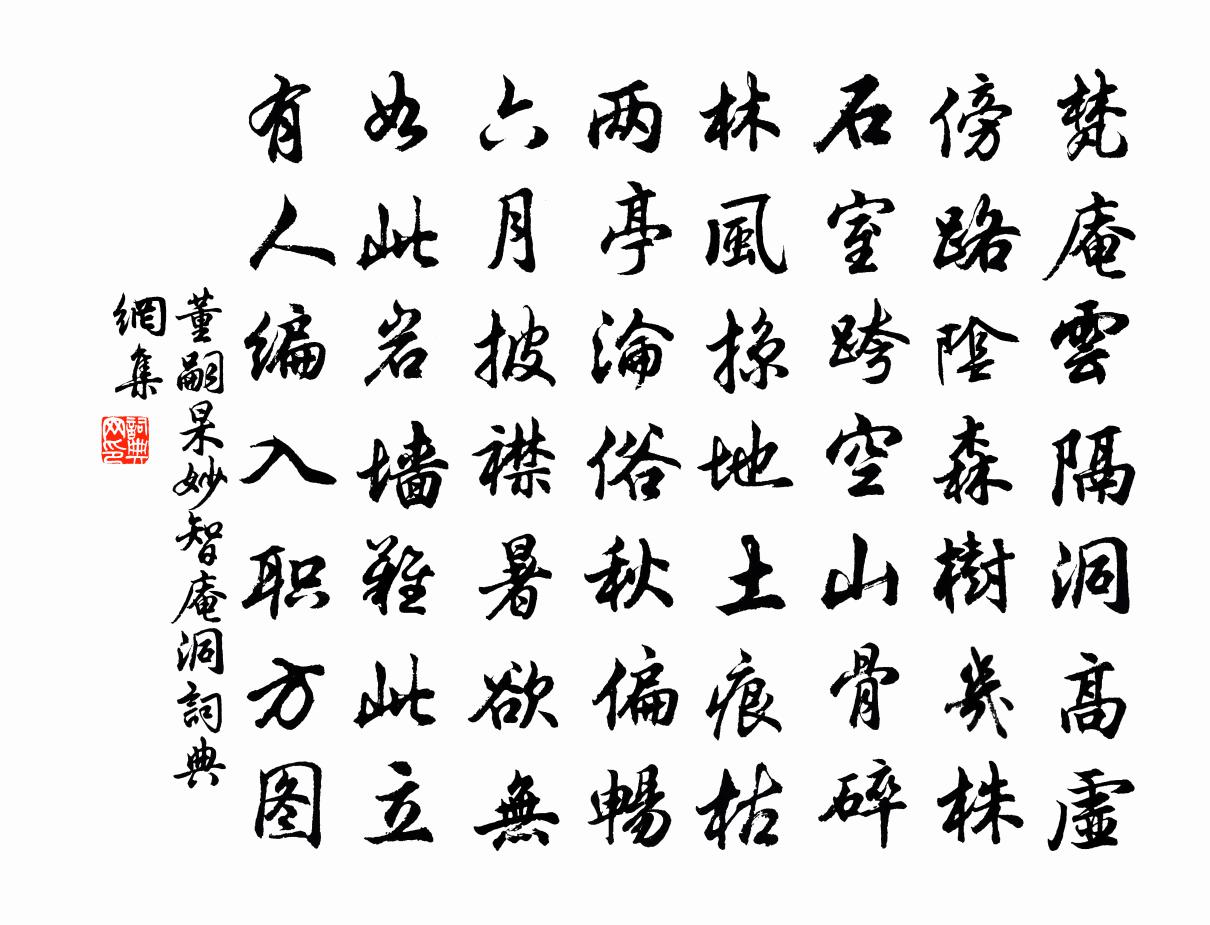 梵庵雲隔洞高虛
傍路陰森樹幾株
石室跨空山骨碎
林風掠地土痕枯
两亭淪俗秋偏暢
六月披襟暑欲無
如此岩墙難此立
有人编入职方图
董嗣杲妙智庵洞詞典
網集
詞典
网印